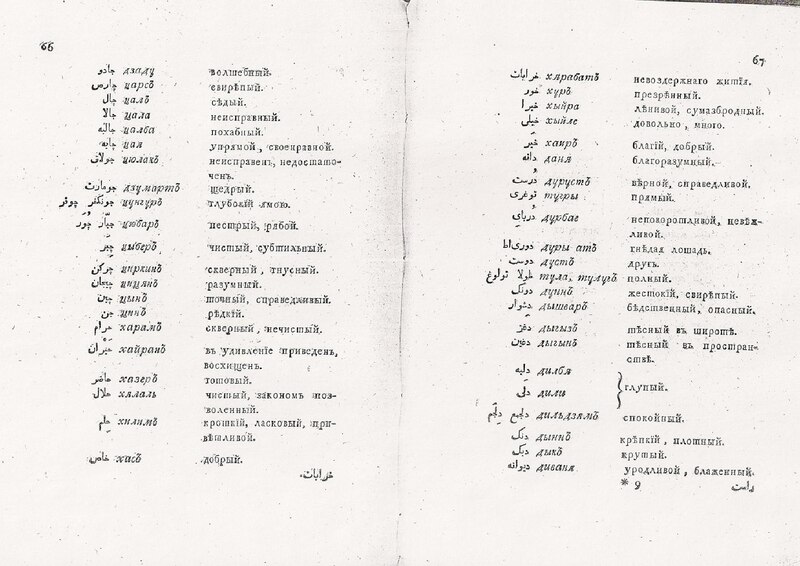 66
جادو дзаду волшебный.
چارص царсъ свирѣпый.
چال цалъ сѣдый.
چالا цала неисправный.
چالبه цалба похабный.
چايه цая упрямой, своенравной.
چولاق цюлакъ неисправенъ, недостато-
ченъ.
جومارت дзумартъ щедрый.
чунгуръ глубокій ямою.
цюбаръ пестрый, рябой.
цыберъ чистый, субтильный.
چركن циркинъ скверный, гнусный.
цицянъ разумный.
چين цынъ точный, справедливый.
цинъ рѣдкій.
حرام харамъ скверный, нечистый.
حيران хайранъ въ удивленіе приведенъ,
восхищенъ.
حاضر хазеръ готовый.
حلال хялаль чистый, закономъ поз-
воленный.
حلم хилимъ кроткій, ласковый, при-
вѣтливой.
خاص хасъ добрый.
خرابات.
67
خرابات хярабатъ невоздержнаго житія.
خور хуръ презрѣнный.
خيرا хыйра лѣнивой, сумазбродный.
خيلى хыйле довольно, много.
خير хаиръ благій, добрый.
دانه даня благоразумный.
درست дурустъ вѣрной, справедливой.
توغرى тугры прямый.
дурбае неповоротливой, невѣж-
ливой.
دورى اط дуры атъ гнѣдая лошадь.
دوست дустъ другъ.
طولا تولوغ тула, тулугъ полный.
دونك дуннъ жестокій, свирѣпый.
دشوار дышваръ бѣдственный, опасный.
дыгызъ тѣсный въ широтѣ.
дыгынъ тѣсный въ простран-
ствѣ.
دلبه дилбя
دلى дили } глупый.
дильдзямъ спокойный.
دنك дыннъ крѣпкій, плотный.
дыкъ крутый.
ديوانه диваня уродливой, блаженный.
* 9 راست